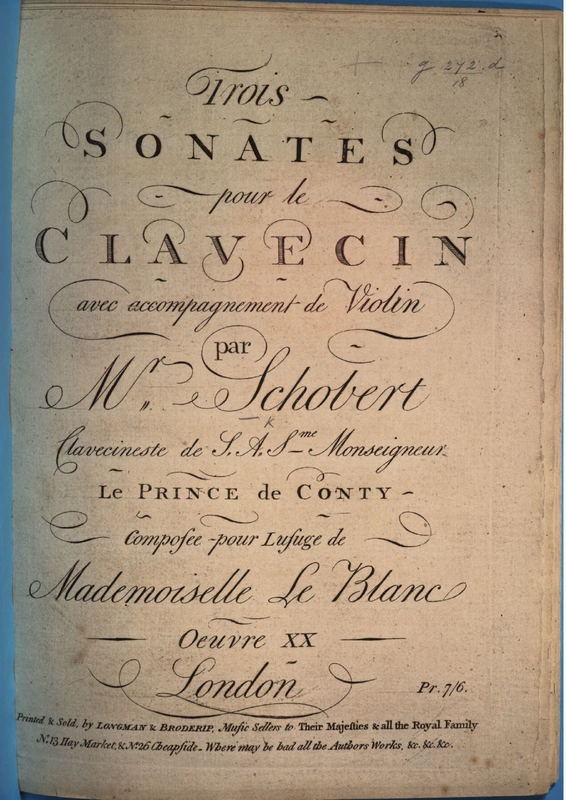 g 272.d
18
Trois
SONATES
pour le
CLAVECIN
avec accompagnement de Violin
par
Mr. Schobert
Clavecineste de S. A. Sme Monseigneur
Le PRINCE de CONTY
Composee pour Lusuge de
Mademoiselle Le Blanc
Oeuvre XX
London
Pr. 7/6.
Printed & Sold, by LONGMAN & BRODERIP, Music Sellers to Their Majesties & all the Royal Family
No. 13 Hay Market, & No. 26 Cheapside. Where may be had all the Authors Works, &c. &c. &c.